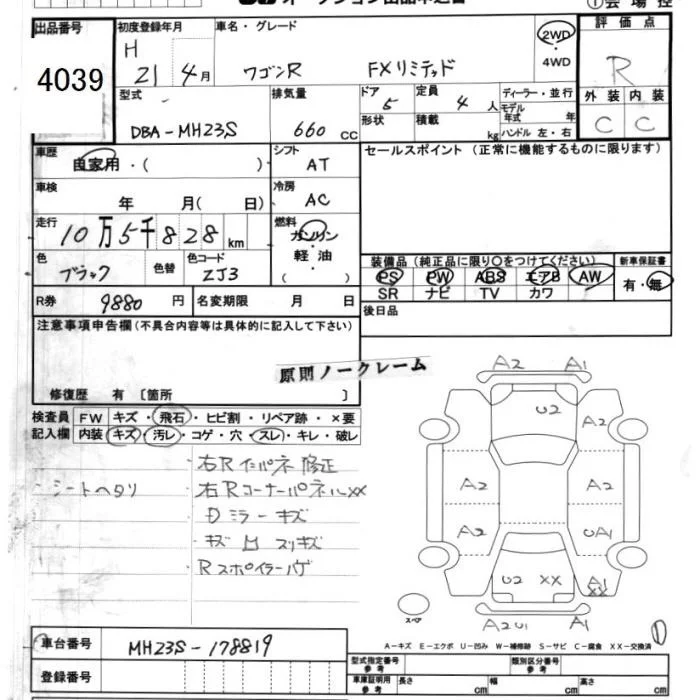 オークション出品申込書
①会場控
出品番号
4039
初度登録年月
H
21 4月
車名・グレード
ワゴンR FXリミテッド
2WD
・
4WD
評価点
R
外装 内装
C C
型式
DBA-MH23S
排気量
660 CC
ドア
5
定員
4 人
形状
積載
kg
ディーラー・並行
モデル
年式 年
ハンドル 左・右
車歴
自家用・( )
シフト
AT
セールスポイント (正常に機能するものに限ります)
車検
年 月( 日)
冷房
AC
走行
10万5千828km
燃料
ガソリン
軽油
( )
色
ブラック
色替
色コード
ZJ3
装備品 (純正品に限り○をつけてください)
PS PW ABS エアB AW
SR ナビ TV カワ
新車保証書
有・無
R券 9880 円
名変期限 月 日
後日品
注意事項申告欄(不具合内容等は具体的に記入して下さい)
原則ノークレーム
修復歴 有 〔箇所 〕
検査員
記入欄
FW キズ・飛石・ヒビ割・リペア跡・×要
内装 キズ・汚レ・コゲ・穴・スレ・キレ・破レ
・シートヘタリ
・右Rインパネ修正
・右RコーナーパネルXX
・Dミラーキズ
・キズ凹スリキズ
・Rスポイラーハゲ
A2 A1
U2
A2
A2 A2
A2 UA1
U2 XX
A1
XX
A2U1 A1
スペア
A-キズ E-エクボ U-凹み W-補修跡 S-サビ C-腐食 XX-交換済
車台番号
MH23S-178819
登録番号
型式指定番号
参考
類別区分番号
参考
車庫証明用
参考
長さ cm 幅 cm 高さ cm